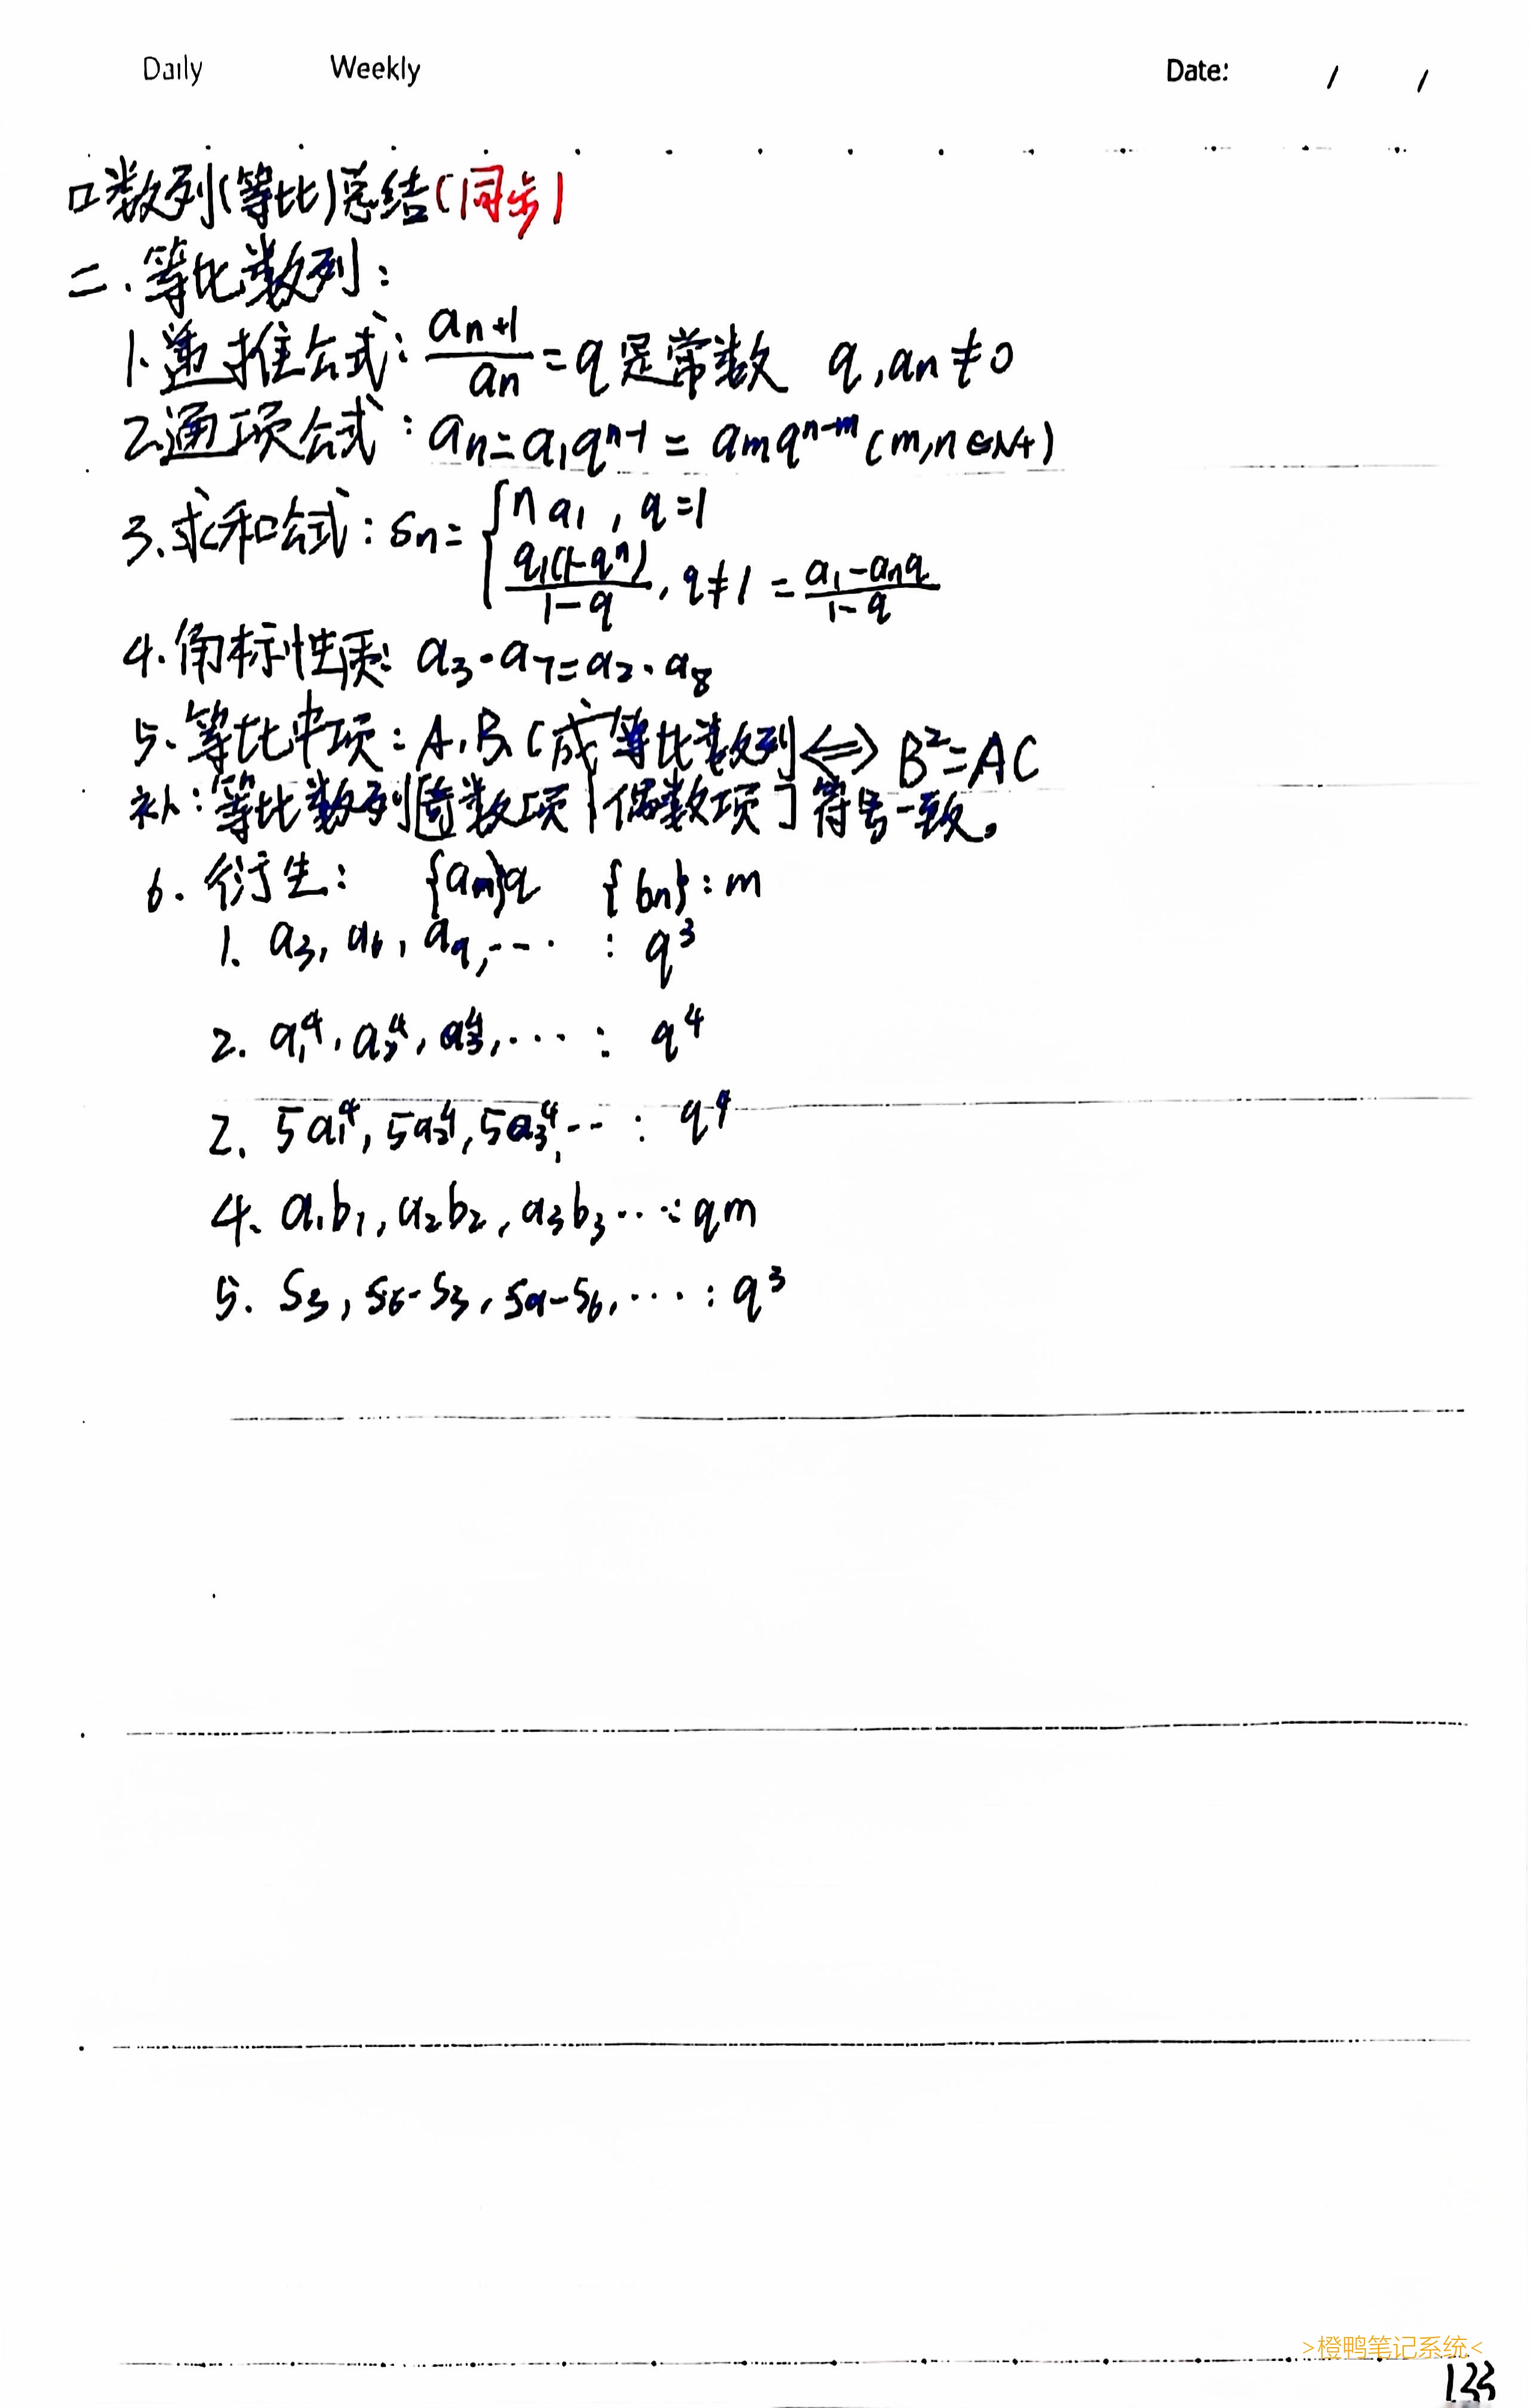 Daily Weekly Date: / /
口数列(等比)总结(同步)
二.等比数列:
1.递推公式: an+1/an = q 是常数 q,an≠0
2.通项公式: an=a1qⁿ⁻¹ = amqⁿ⁻ᵐ (m,n∈N+)
3.求和公式: Sn= { na1, q=1
a1(1-qⁿ)/1-q, q≠1 = a1-anq/1-q
4.角标性质: a3·a7=a2·a8
5.等比中项: A,B,C成等比数列⇔B²=AC
补:等比数列[奇数项|偶数项]符号一致。
6.衍生: {an}q {bn}:m
1. a3, a6, a9,··· : q³
2. a1⁴, a2⁴, a3⁴,··· : q⁴
2. 5a1⁴, 5a2⁴, 5a3⁴,·· : q⁴
4. a1b1, a2b2, a3b3···: qm
5. S3, S6-S3, S9-S6,··· : q³
>橙鸭笔记系统<
133